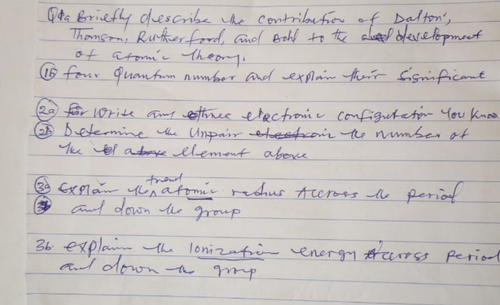 Q1a Briefly describe the contribution of Dalton,
Thomson, Rutherford, and Bohl to the development
of atomic theory.
1b four Quantum number and explain their Significant
2a Write any three electronic configuration You know
2b Determine the Unpair the number of
the element above
3a Explain the trend atomic radius Accross the period
and down the group
3b explain the Ionization energy Accross period
and down the group